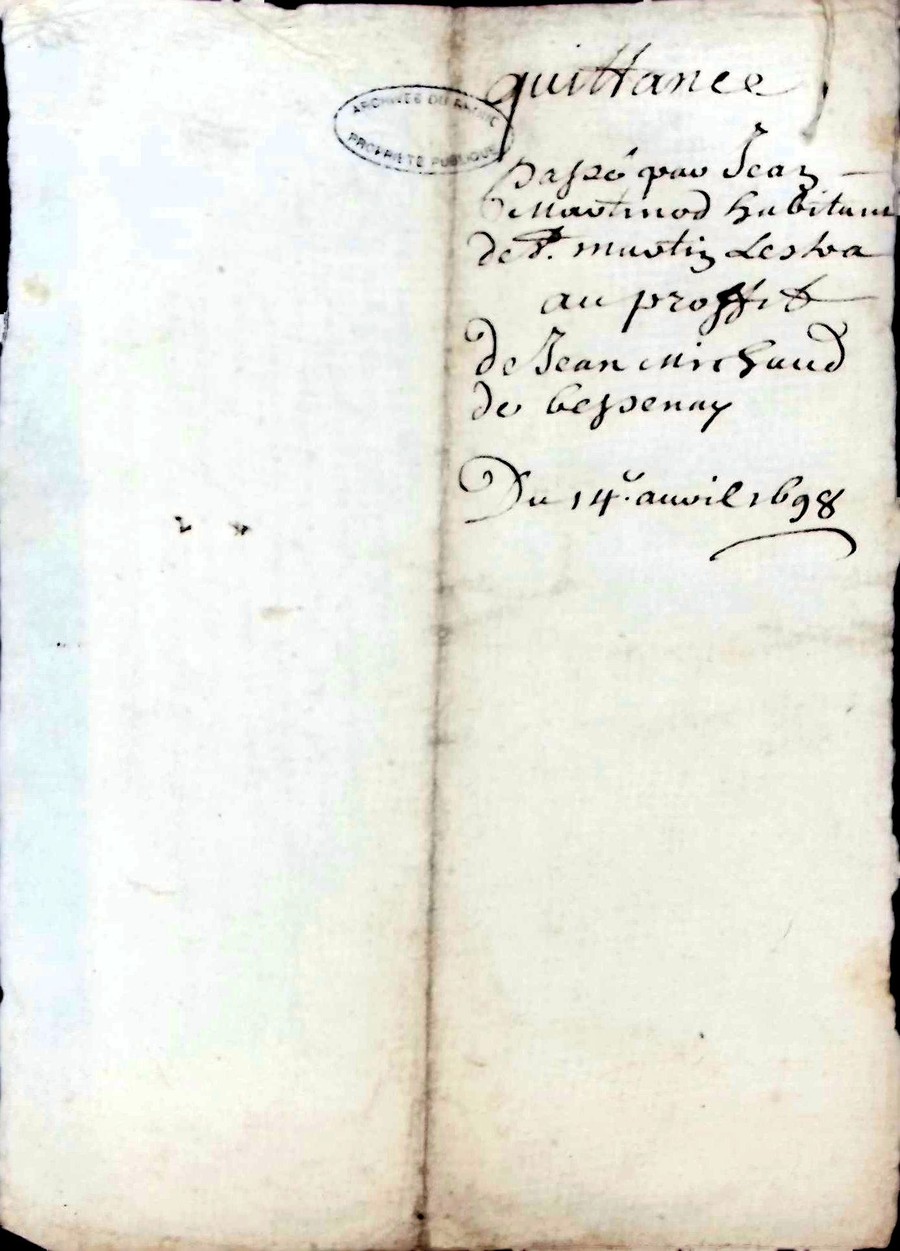 quittance
ARCHIVES DU RHÔNE
PROPRIÉTÉ PUBLIQUE
passé par Jean
Martinod habitant
de St. martin Lestra
au proffit
de Jean Michaud
de bessenay
Du 14e. auril 1698